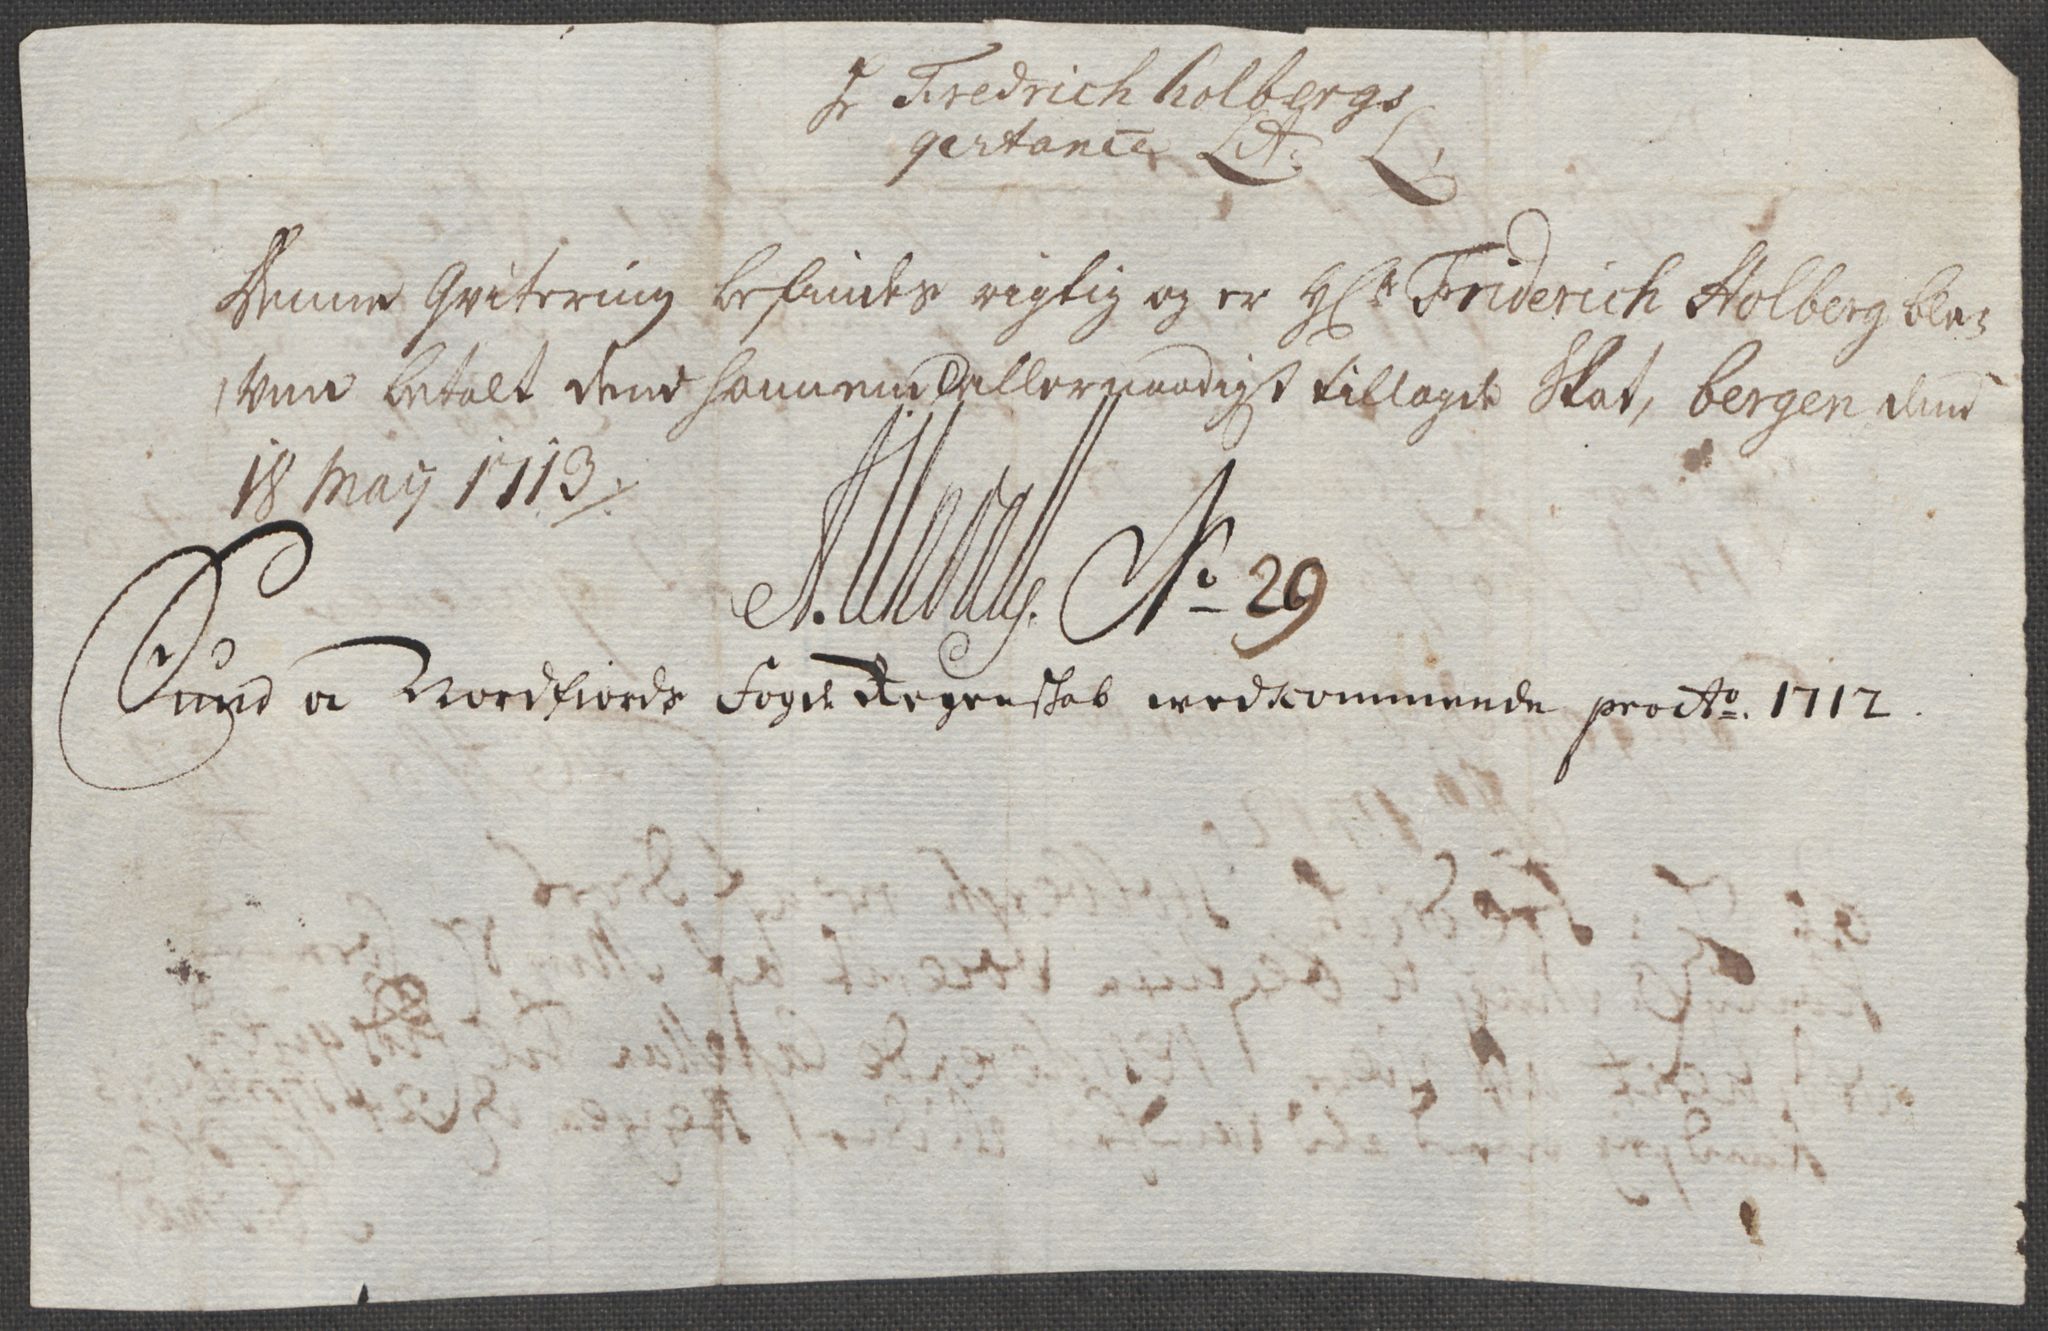 Hr Fredrich holbergs
qvitance Lit. L,
Denne Qvitering befindes rigtig og er Hr. Friderich Holberg ble-
ven betalt dend hannem allernaadigst tillagde Skat, bergen dend
18 May 1713.
No 29
Sund og Nordfiords Fogde Regenskab vedkommende pro Ao. 1712.